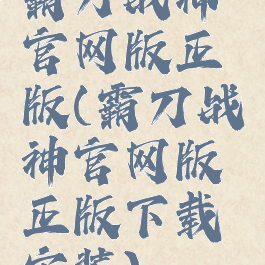 霸刀战神
官网版正
版(霸刀战
神官网版
正版下载
安装)